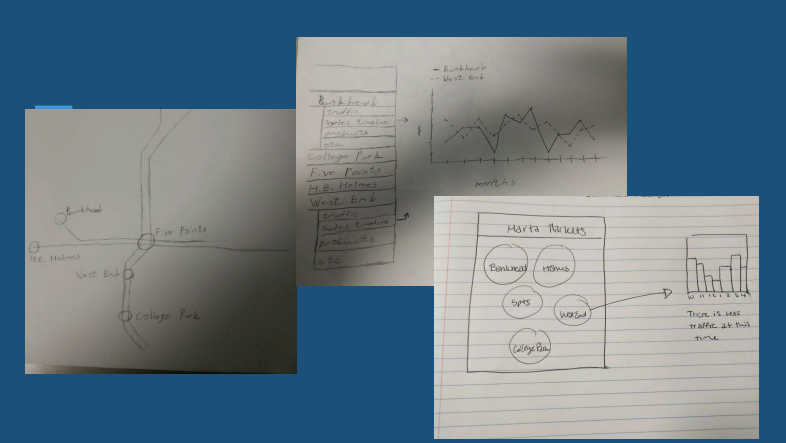 Bankhead
Five Points
H.E. Holmes
West End
College Park
Bankhead
traffic
Sales timeline
products
etc
College Park
Five Points
H.E. Holmes
West End
traffic
Sales timeline
products
etc
Bankhead
West End
$
months
Marta Markets
Bankhead
Holmes
5pts
West End
College Park
10 11 12 1 2 3 4
There is less
traffic at this
time